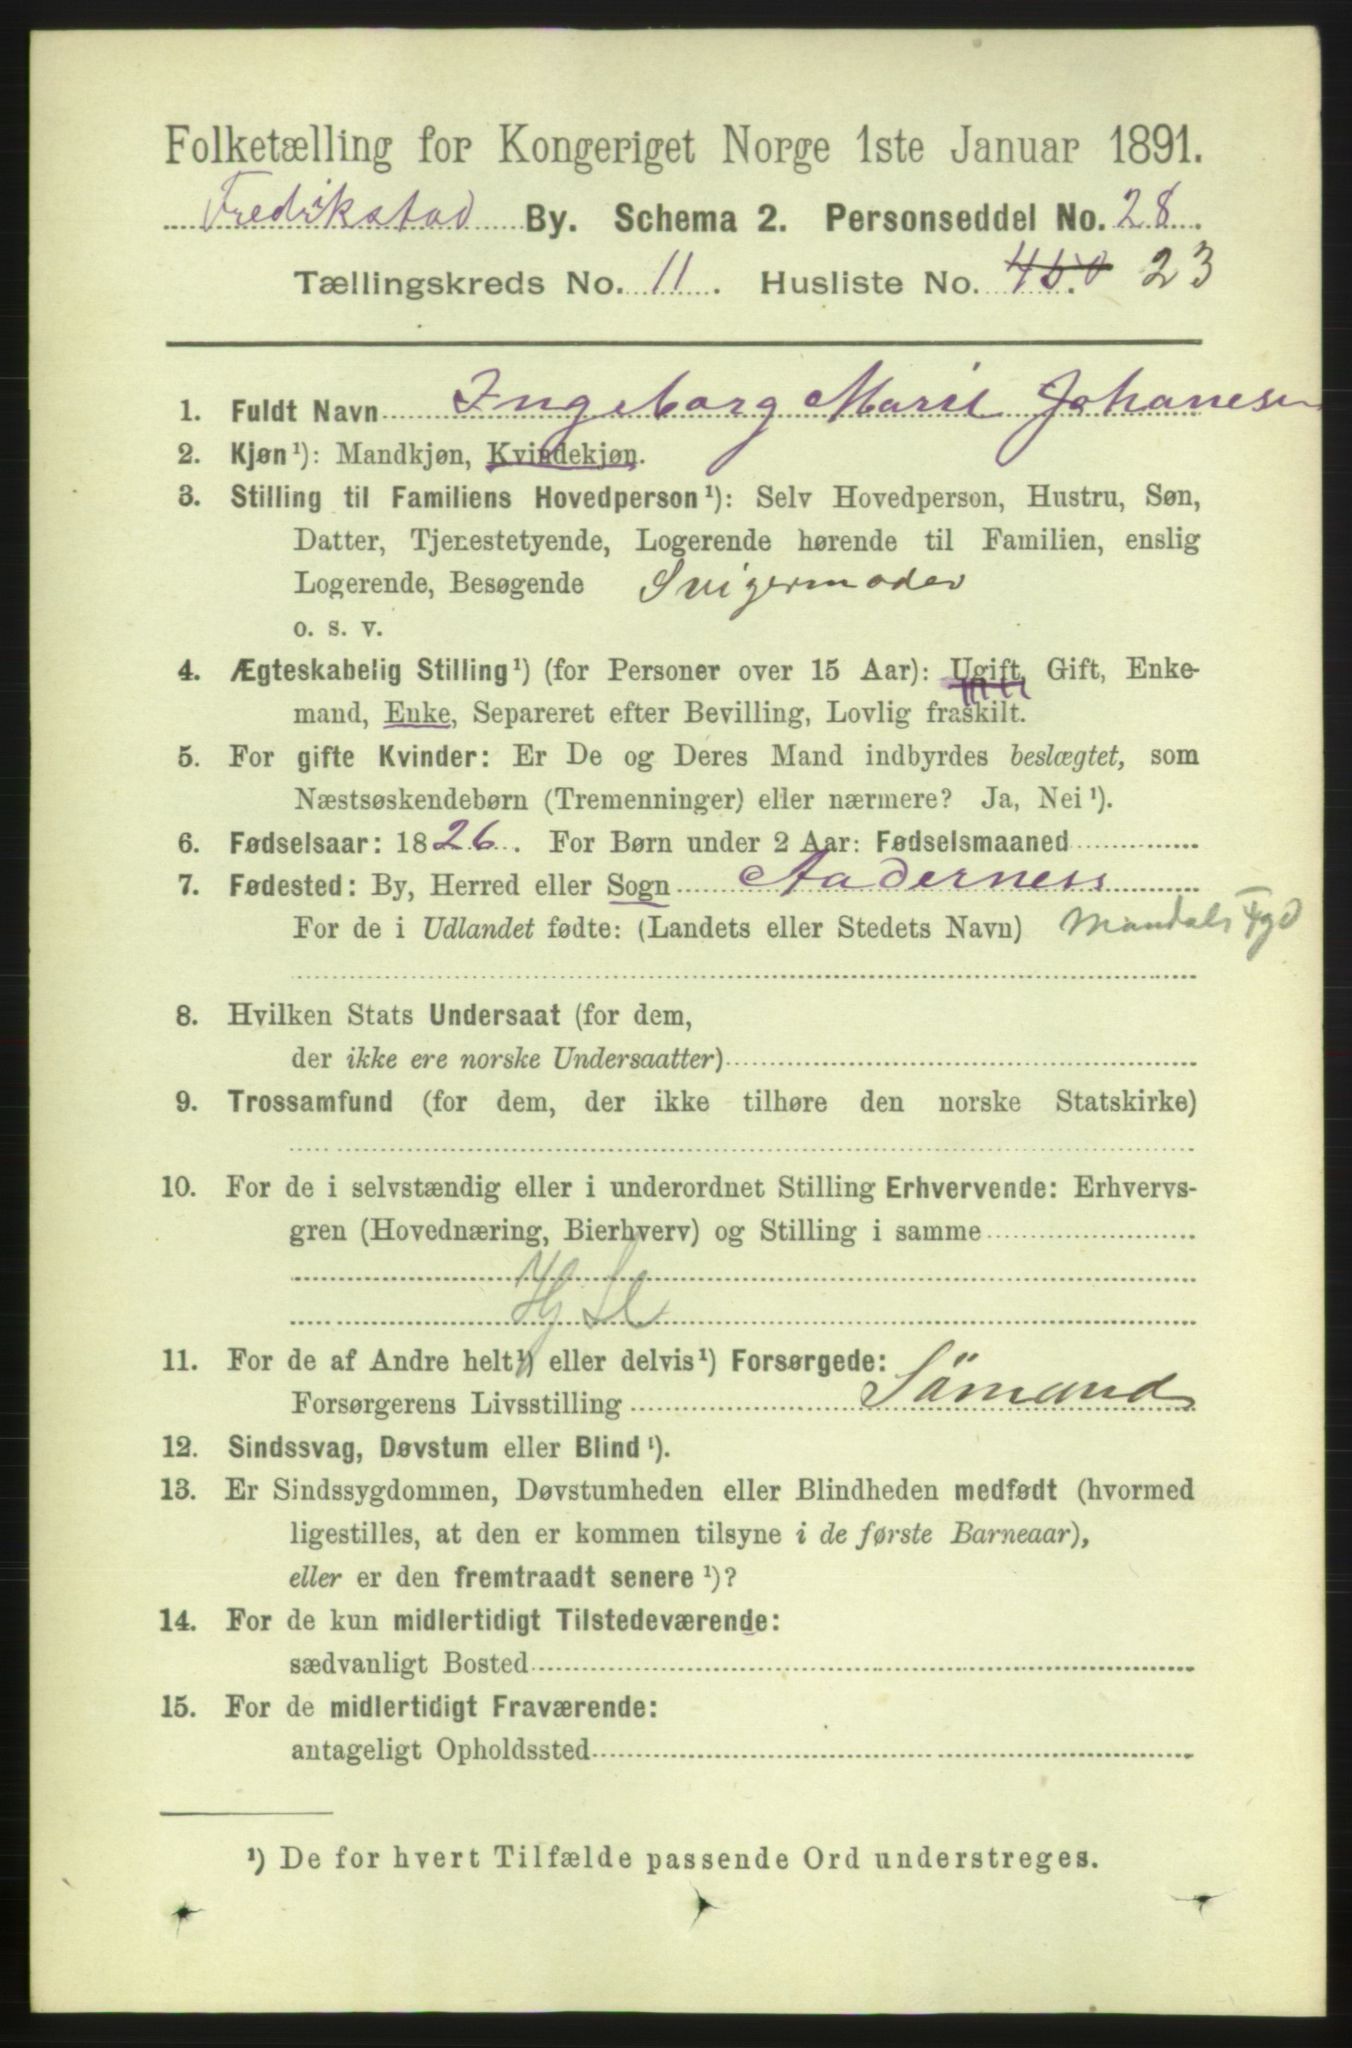 Folketælling for Kongeriget Norge 1ste Januar 1891.
Fredrikstad By. Schema 2. Personseddel No. 28.
Tællingskreds No. 11. Husliste No. 23
1. Fuldt Navn Ingeborg Marie Johanesen
2. Kjøn¹): Mandkjøn, Kvindekjøn.
3. Stilling til Familiens Hovedperson¹): Selv Hovedperson, Hustru, Søn,
Datter, Tjenestetyende, Logerende hørende til Familien, enslig
Logerende, Besøgende Svigermoder
o. s. v.
4. Ægteskabelig Stilling¹) (for Personer over 15 Aar): Ugift, Gift, Enke-
mand, Enke, Separeret efter Bevilling, Lovlig fraskilt.
5. For gifte Kvinder: Er De og Deres Mand indbyrdes beslægtet, som
Næstsøskendebørn (Tremenninger) eller nærmere? Ja, Nei¹).
6. Fødselsaar: 1826. For Børn under 2 Aar: Fødselsmaaned
7. Fødested: By, Herred eller Sogn Aaderness
For de i Udlandet fødte: (Landets eller Stedets Navn) Mandals Fgd
8. Hvilken Stats Undersaat (for dem,
der ikke ere norske Undersaatter)
9. Trossamfund (for dem, der ikke tilhøre den norske Statskirke)
10. For de i selvstændig eller i underordnet Stilling Erhvervende: Erhvervs-
gren (Hovednæring, Bierhverv) og Stilling i samme
11. For de af Andre helt¹) eller delvis¹) Forsørgede:
Forsørgerens Livsstilling Sömand
12. Sindssvag, Døvstum eller Blind¹).
13. Er Sindssygdommen, Døvstumheden eller Blindheden medfødt (hvormed
ligestilles, at den er kommen tilsyne i de første Barneaar),
eller er den fremtraadt senere¹)?
14. For de kun midlertidigt Tilstedeværende:
sædvanligt Bosted
15. For de midlertidigt Fraværende:
antageligt Opholdssted
¹) De for hvert Tilfælde passende Ord understreges.